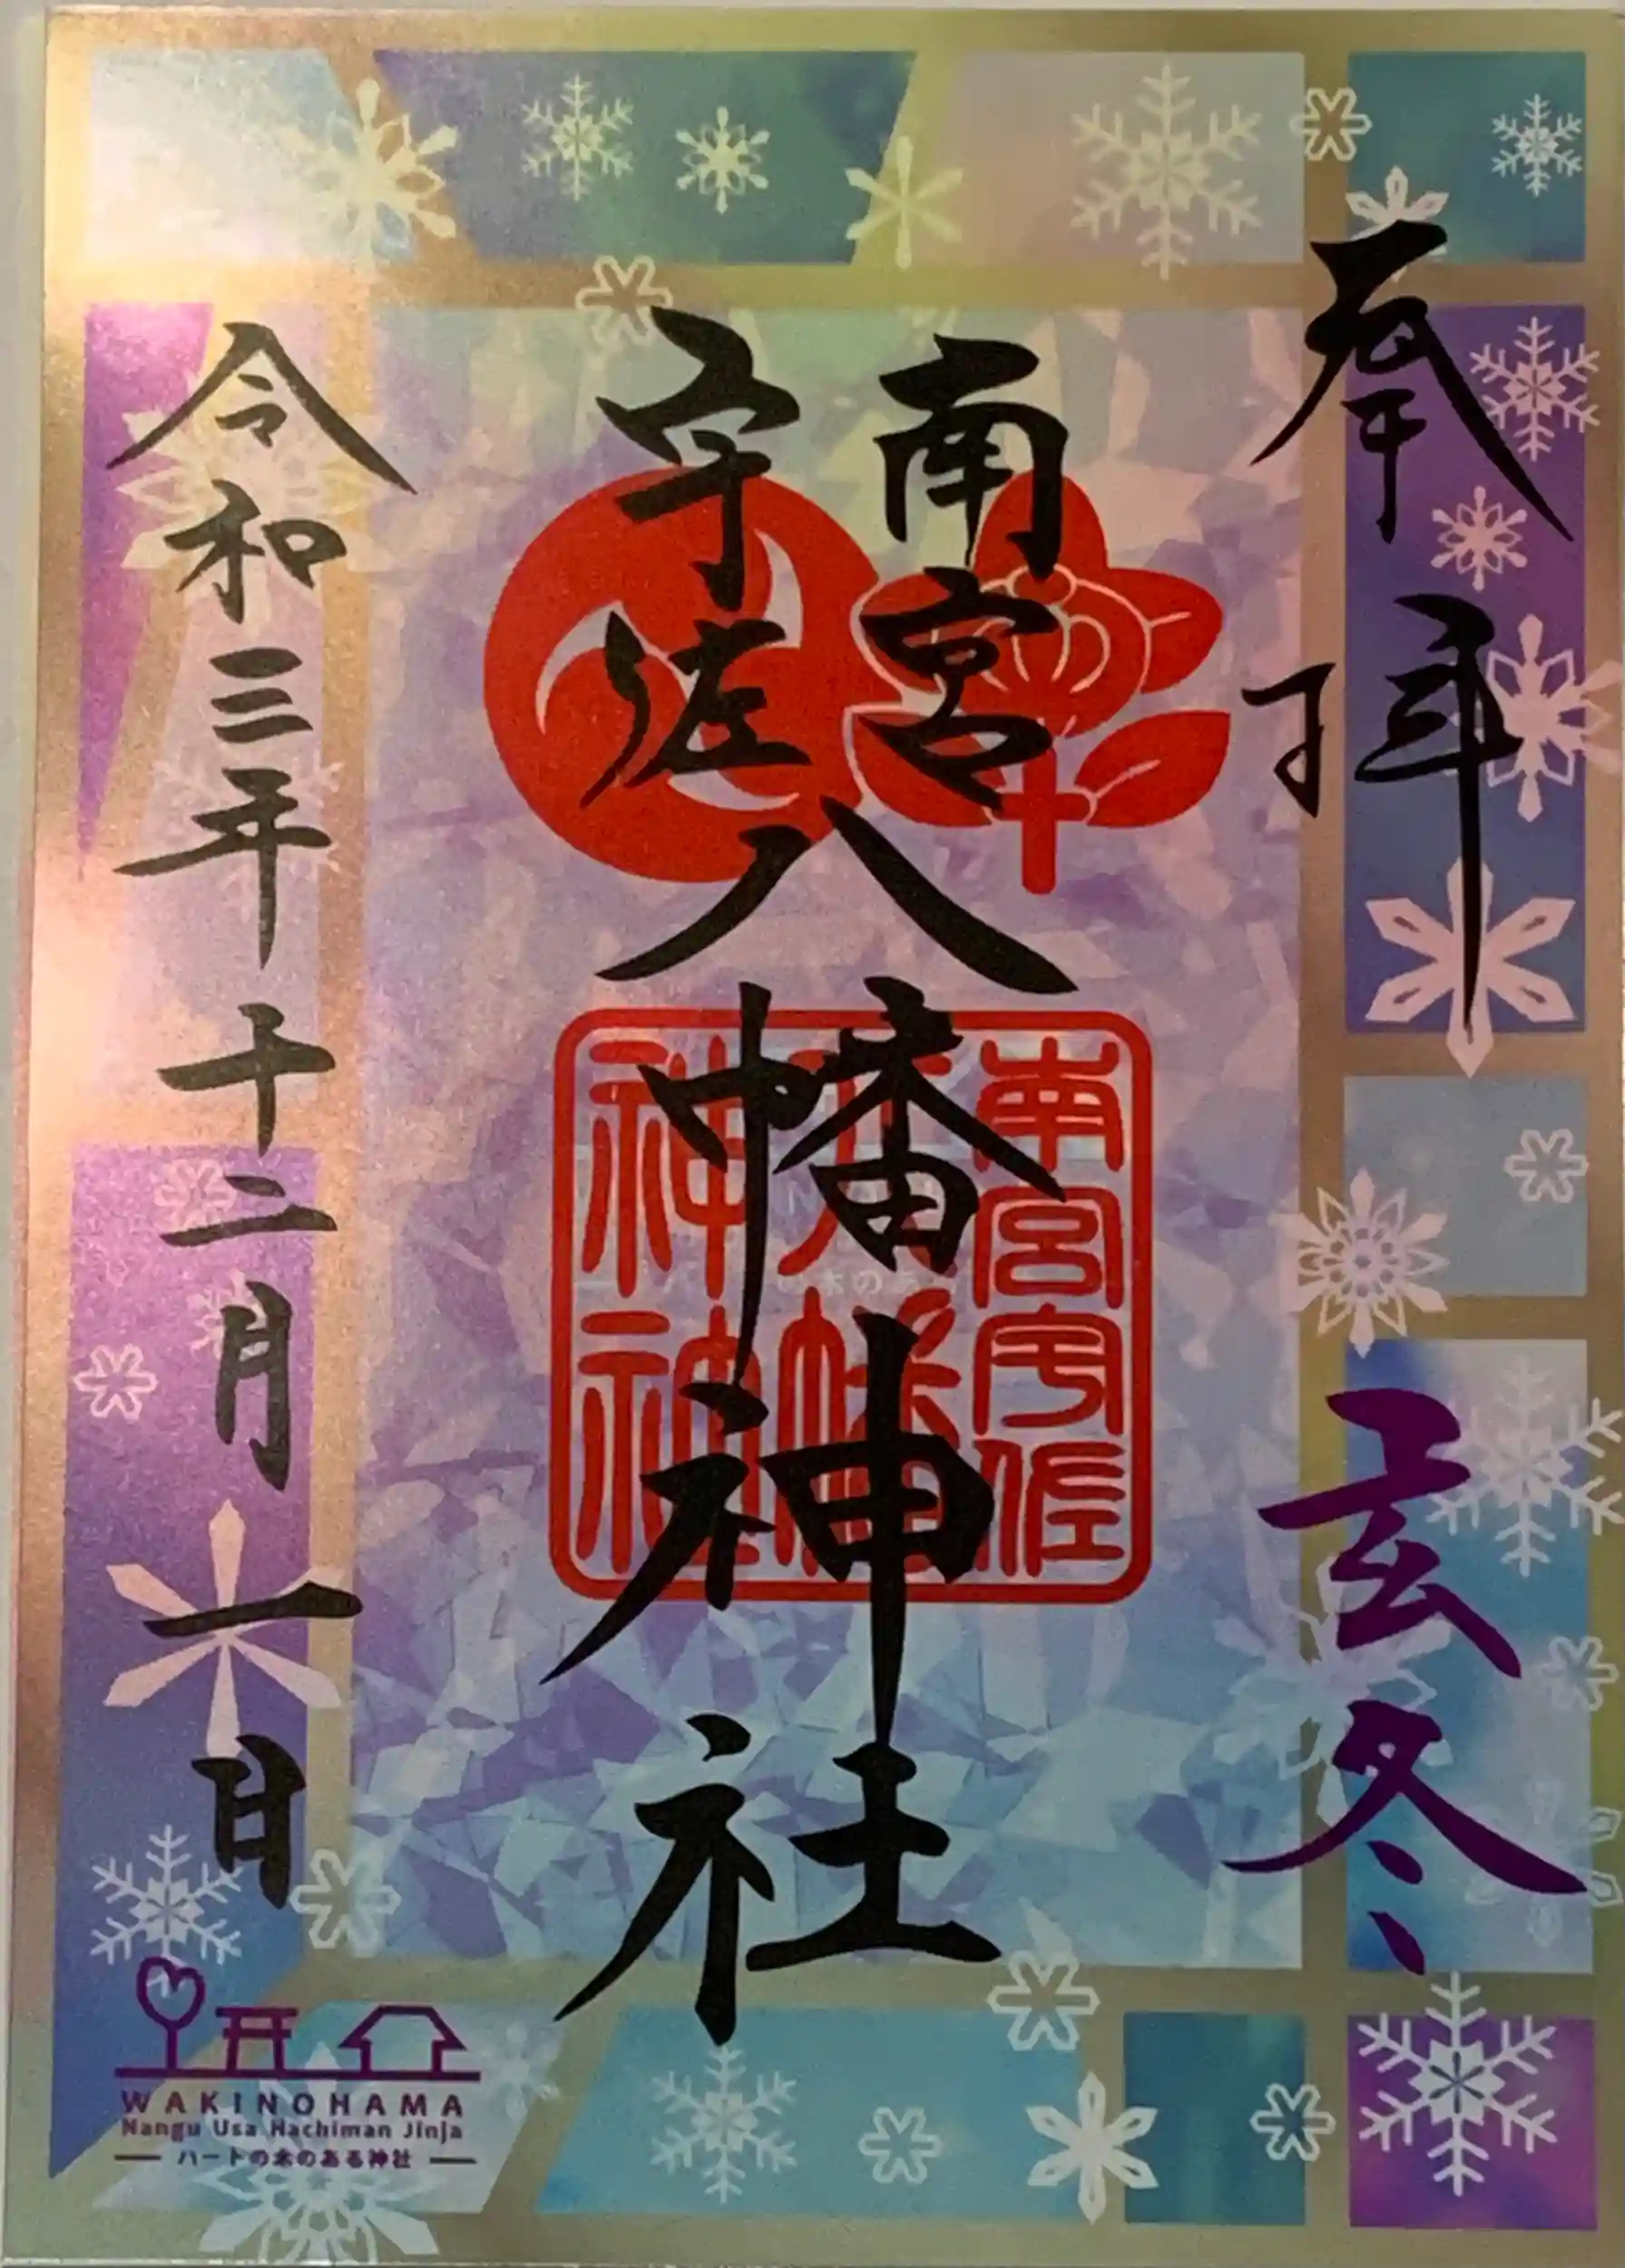 奉拝
玄冬
南宮
宇佐
八幡神社
南宮宇佐
八幡
神社
令和三年十二月一日
WAKINOHAMA
Nangu Usa Hachiman Jinja
ハートの木のある神社